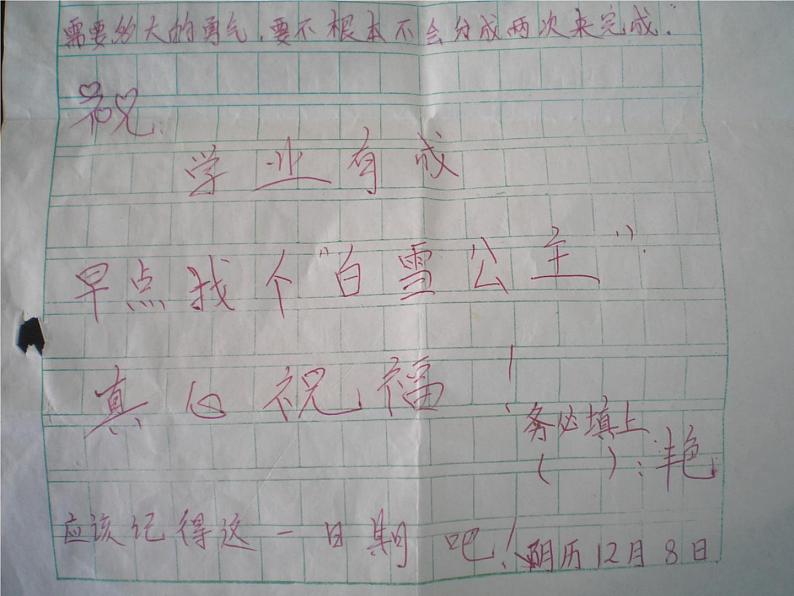 需要多大的勇气，要不根本不会分成两次来完成．
祝：
学业有成
早点找个"白雪公主"．
真心祝福！
务必填上
（　）：艳
应该记得这一日期吧！阴历12月8日